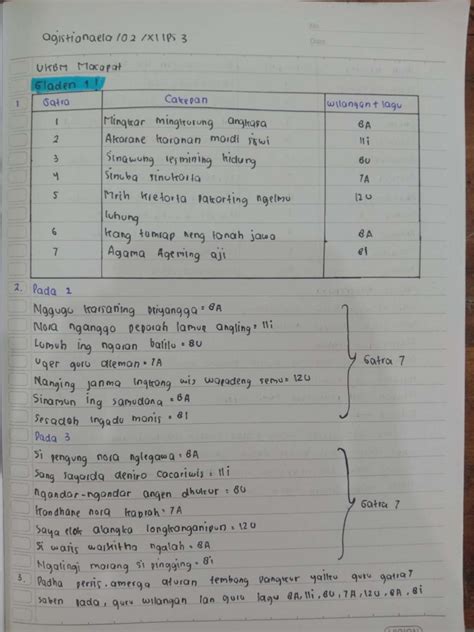 No:
Date:
agistianaela /02 /XI IPS 3
UKBM Macapat
Gladen 1 !
1 Gatra Cakepan wilangan + lagu
1 Mingkar mingkurung angkara 8A
2 Akarane karanan mardi siswi 11i
3 Sinawung resmining kidung 8U
4 Sinuba sinukarta 7A
5 Mrih kretarta pakarting ngelmu luhung 12U
6 Kang tumrap neng tanah jawa 8A
7 Agama Ageming aji 8i
2. Pada 2
Nggugu karsaning priyangga = 8A
Nora nganggo peparah lamue angling = 11i
Lumuh ing ngaran balilu = 8U
Uger guru aleman = 7A
Nanging janma ingkang wis waspadeng semu = 12U
Sinamun ing samudana = 8A
Sesadon ingadu manis = 8i
Gatra 7
Pada 3
Si pengung nora nglegawa = 8A
Sang sayarda deniro cacariwis = 11i
Ngandar-ngandar angen dhukur = 8U
Kandhane nora kaprah = 7A
Saya elok alangka longkanganipun = 12U
Si waris waskitha ngalah = 8A
Ngalingi marang si pingging = 8i
Gatra 7
3. Padha persis. amerga aturan tembang pangkur yaiku guru gatra 7
saben pada, guru wilangan lan guru lagu 8A, 11i, 8U, 7A, 12U, 8A, 8i